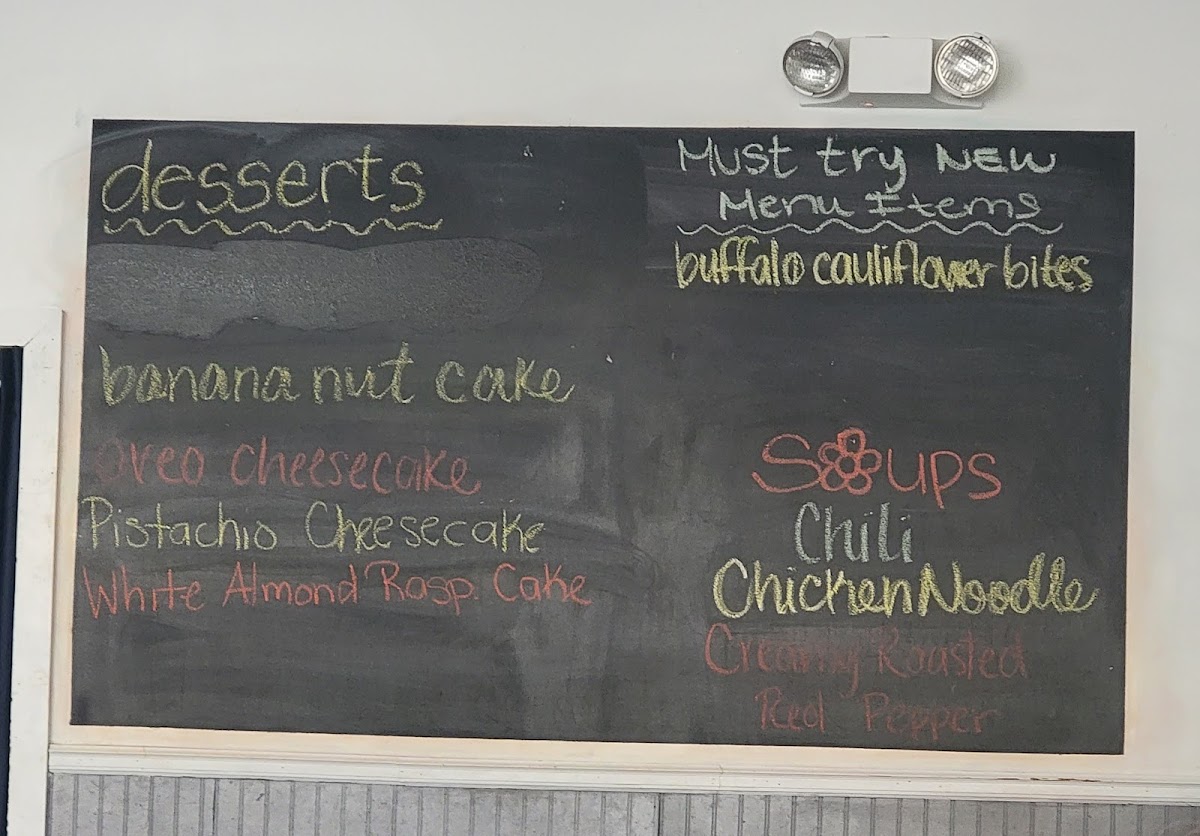 desserts
banana nut cake
oreo cheesecake
Pistachio Cheesecake
White Almond Rasp. Cake
Must try NEW
Menu Items
buffalo cauliflower bites
Soups
Chili
Chicken Noodle
Creamy Roasted
Red Pepper